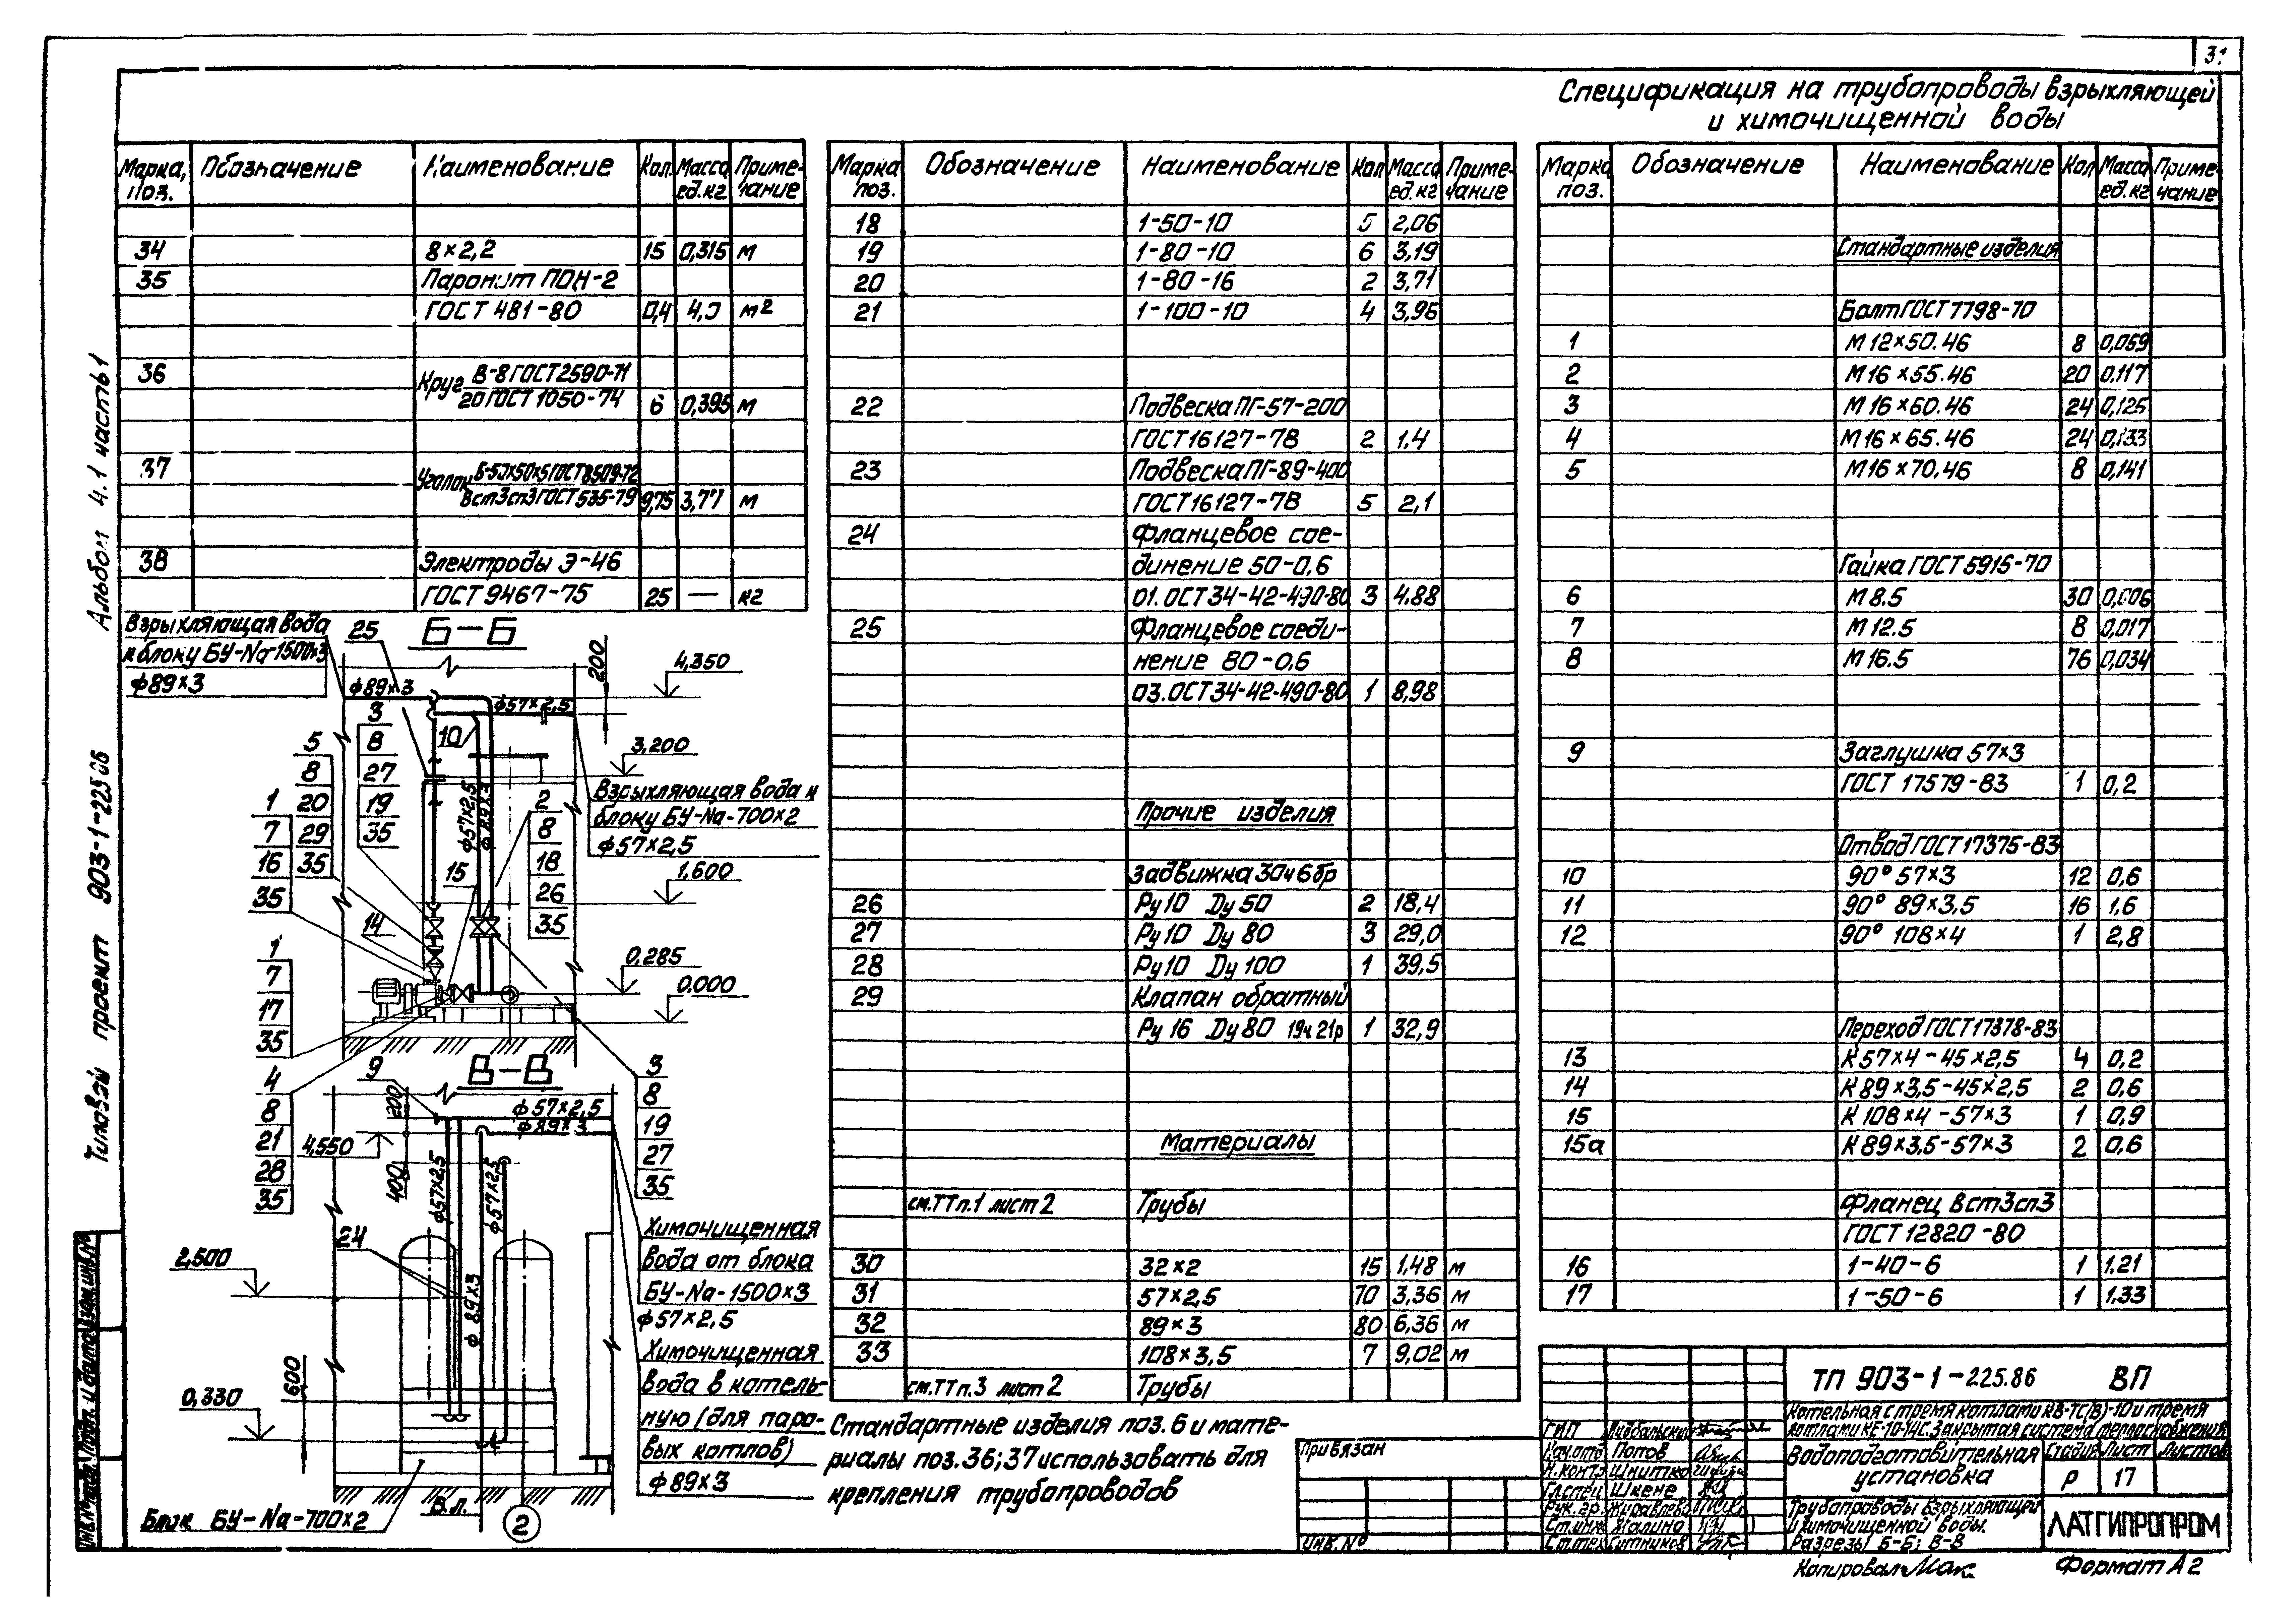 31
Спецификация на трубопроводы взрыхляющей
и химочищенной воды
Марка, поз. Обозначение Наименование Кол. Масса ед. кг Приме-чание
34 8×2,2 15 0,315 м
35 Паронит ПОН-2
ГОСТ 481-80 0,4 4,0 м2
36 Круг В-8 ГОСТ 2590-71
20 ГОСТ 1050-74 6 0,395 м
37 Уголок Б-50×50×5 ГОСТ 8509-72
Вст3сп3 ГОСТ 535-79 9,75 3,77 м
38 Электроды Э-46
ГОСТ 9467-75 25 — кг
Марка поз. Обозначение Наименование Кол Масса ед. кг Приме-чание
18 1-50-10 5 2,06
19 1-80-10 6 3,19
20 1-80-16 2 3,71
21 1-100-10 4 3,96
22 Подвеска ПГ-57-200
ГОСТ 16127-78 2 1,4
23 Подвеска ПГ-89-400
ГОСТ 16127-78 5 2,1
24 Фланцевое сое-
динение 50-0,6
01. ОСТ 34-42-490-80 3 4,88
25 Фланцевое соеди-
нение 80-0,6
03. ОСТ 34-42-490-80 1 8,98
Прочие изделия
Задвижка 30ч6бр
26 Ру10 Ду 50 2 18,4
27 Ру10 Ду 80 3 29,0
28 Ру10 Ду 100 1 39,5
29 Клапан обратный
Ру 16 Ду 80 19ч21р 1 32,9
Материалы
см.ТТп.1 лист 2 Трубы
30 32×2 15 1,48 м
31 57×2,5 70 3,36 м
32 89×3 80 6,36 м
33 108×3,5 7 9,02 м
см.ТТп.3 лист 2 Трубы
Марка поз. Обозначение Наименование Кол Масса ед. кг Приме-чание
Стандартные изделия
Болт ГОСТ 7798-70
1 М12×50.46 8 0,059
2 М16×55.46 20 0,117
3 М16×60.46 24 0,125
4 М16×65.46 24 0,133
5 М16×70.46 8 0,141
Гайка ГОСТ 5915-70
6 М8.5 30 0,006
7 М12.5 8 0,017
8 М16.5 76 0,034
9 Заглушка 57×3
ГОСТ 17579-83 1 0,2
Отвод ГОСТ 17375-83
10 90° 57×3 12 0,6
11 90° 89×3,5 16 1,6
12 90° 108×4 1 2,8
Переход ГОСТ 17378-83
13 К 57×4-45×2,5 4 0,2
14 К 89×3,5-45×2,5 2 0,6
15 К 108×4-57×3 1 0,9
15а К 89×3,5-57×3 2 0,6
Фланец Вст3сп3
ГОСТ 12820-80
16 1-40-6 1 1,21
17 1-50-6 1 1,33
Б-Б
Взрыхляющая вода
к блоку БУ-Na-1500×3
ф89×3
25
ф89×3
ф57×2,5
200
4,350
3,200
1,600
0,285
0,000
10
3
8
27
19
35
5
8
20
29
35
1
7
16
35
14
15
ф57×2,5
ф89×3
2
8
18
26
35
Взрыхляющая вода к
блоку БУ-Na-700×2
ф57×2,5
1
7
17
35
4
8
21
28
35
3
8
19
27
35
В-В
9
200
ф57×2,5
ф89×3
4,550
400
ф57×2,5
ф57×2,5
ф89×3
24
2,500
0,330
600
Химочищенная
вода от блока
БУ-Na-1500×3
ф57×2,5
Химочищенная
вода в котель-
ную (для паро-
вых котлов)
ф89×3
Блок БУ-Na-700×2
В.Л.
2
Стандартные изделия поз. 6 и мате-
риалы поз. 36; 37 использовать для
крепления трубопроводов
Привязан
Инв. №
ТП 903-1-225.86 ВП
Котельная с тремя котлами КВ-ТС(В)-10 и тремя
котлами КЕ-10-14С. Закрытая система теплоснабжения
Водоподготовительная
установка
Стадия Лист Листов
Р 17
Трубопроводы взрыхляющей
и химочищенной воды.
Разрезы Б-Б; В-В
ЛАТГИПРОПРОМ
ГИП
Нач.отд Попов
Н.контр Шнитко
Гл.спец Шкене
Рук.гр.
Ст.инж Жалина
Ст.тех
Копировал
Формат А2
Альбом 4.1 часть 1
Типовой проект 903-1-225.86
Инв.№ подл. Подп. и дата Взам.инв.№